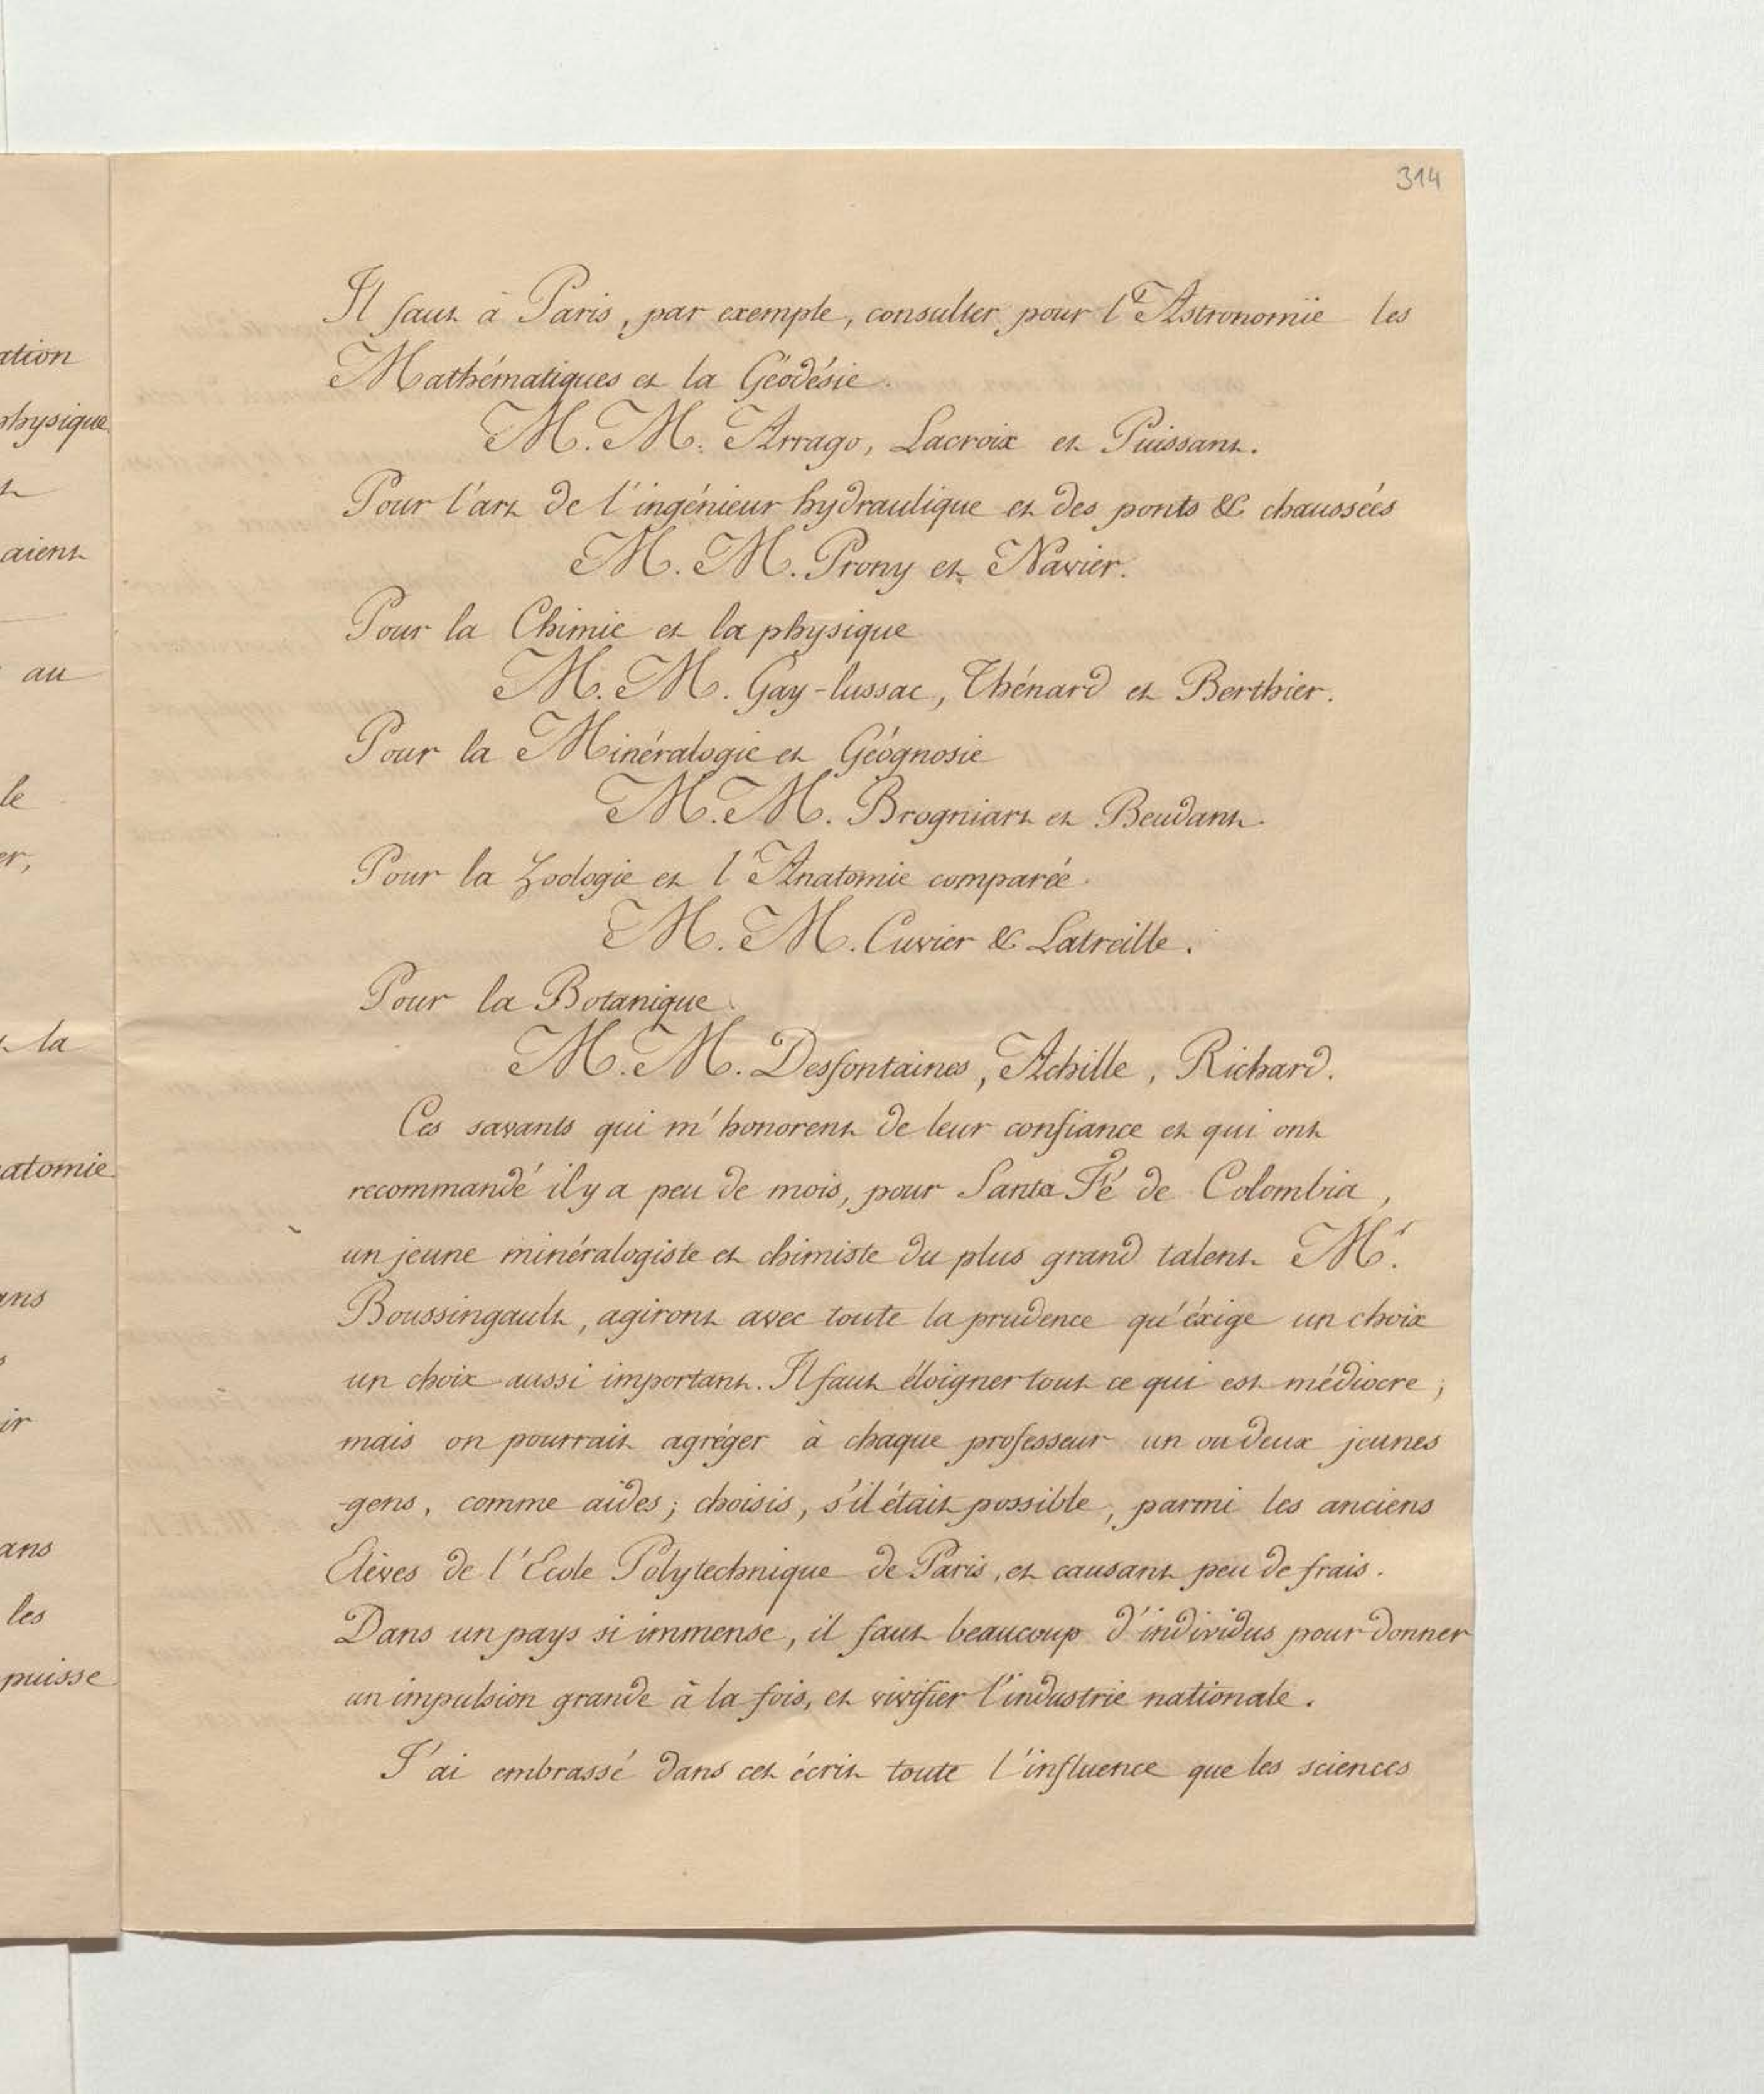 314
Il faut à Paris, par exemple, consulter pour l'Astronomie les
Mathématiques et la Géodésie.
M. M. Arrago, Lacroix et Puissant.
Pour l'art de l'ingénieur hydraulique et des ponts & chaussées
M. M. Prony et Navier.
Pour la Chimie et la physique
M. M. Gay-lussac, Thénard et Berthier.
Pour la Minéralogie et Géognosie
M. M. Brogniart et Beudant.
Pour la Zoologie et l'Anatomie comparée.
M. M. Cuvier & Latreille.
Pour la Botanique.
M. M. Desfontaines, Achille, Richard.
Ces savants qui m'honorent de leur confiance et qui ont
recommandé il y a peu de mois, pour Santa Fé de Colombia,
un jeune minéralogiste et chimiste du plus grand talent Mr.
Boussingault, agiront avec toute la prudence qu'éxige un choix
un choix aussi important. Il faut éloigner tout ce qui est médiocre;
mais on pourrait agréger à chaque professeur un ou deux jeunes
-gens, comme aides; choisis, s'il était possible, parmi les anciens
Elèves de l'Ecole Polytechnique de Paris, et causant peu de frais.
Dans un pays si immense, il faut beaucoup d'individus pour donner
un impulsion grande à la fois, et vivifier l'industrie nationale.
J'ai embrassé dans cet écrit toute l'influence que les sciences
ation
physique
aient
au
le
er,
la
atomie
ans
ir
ans
les
puisse